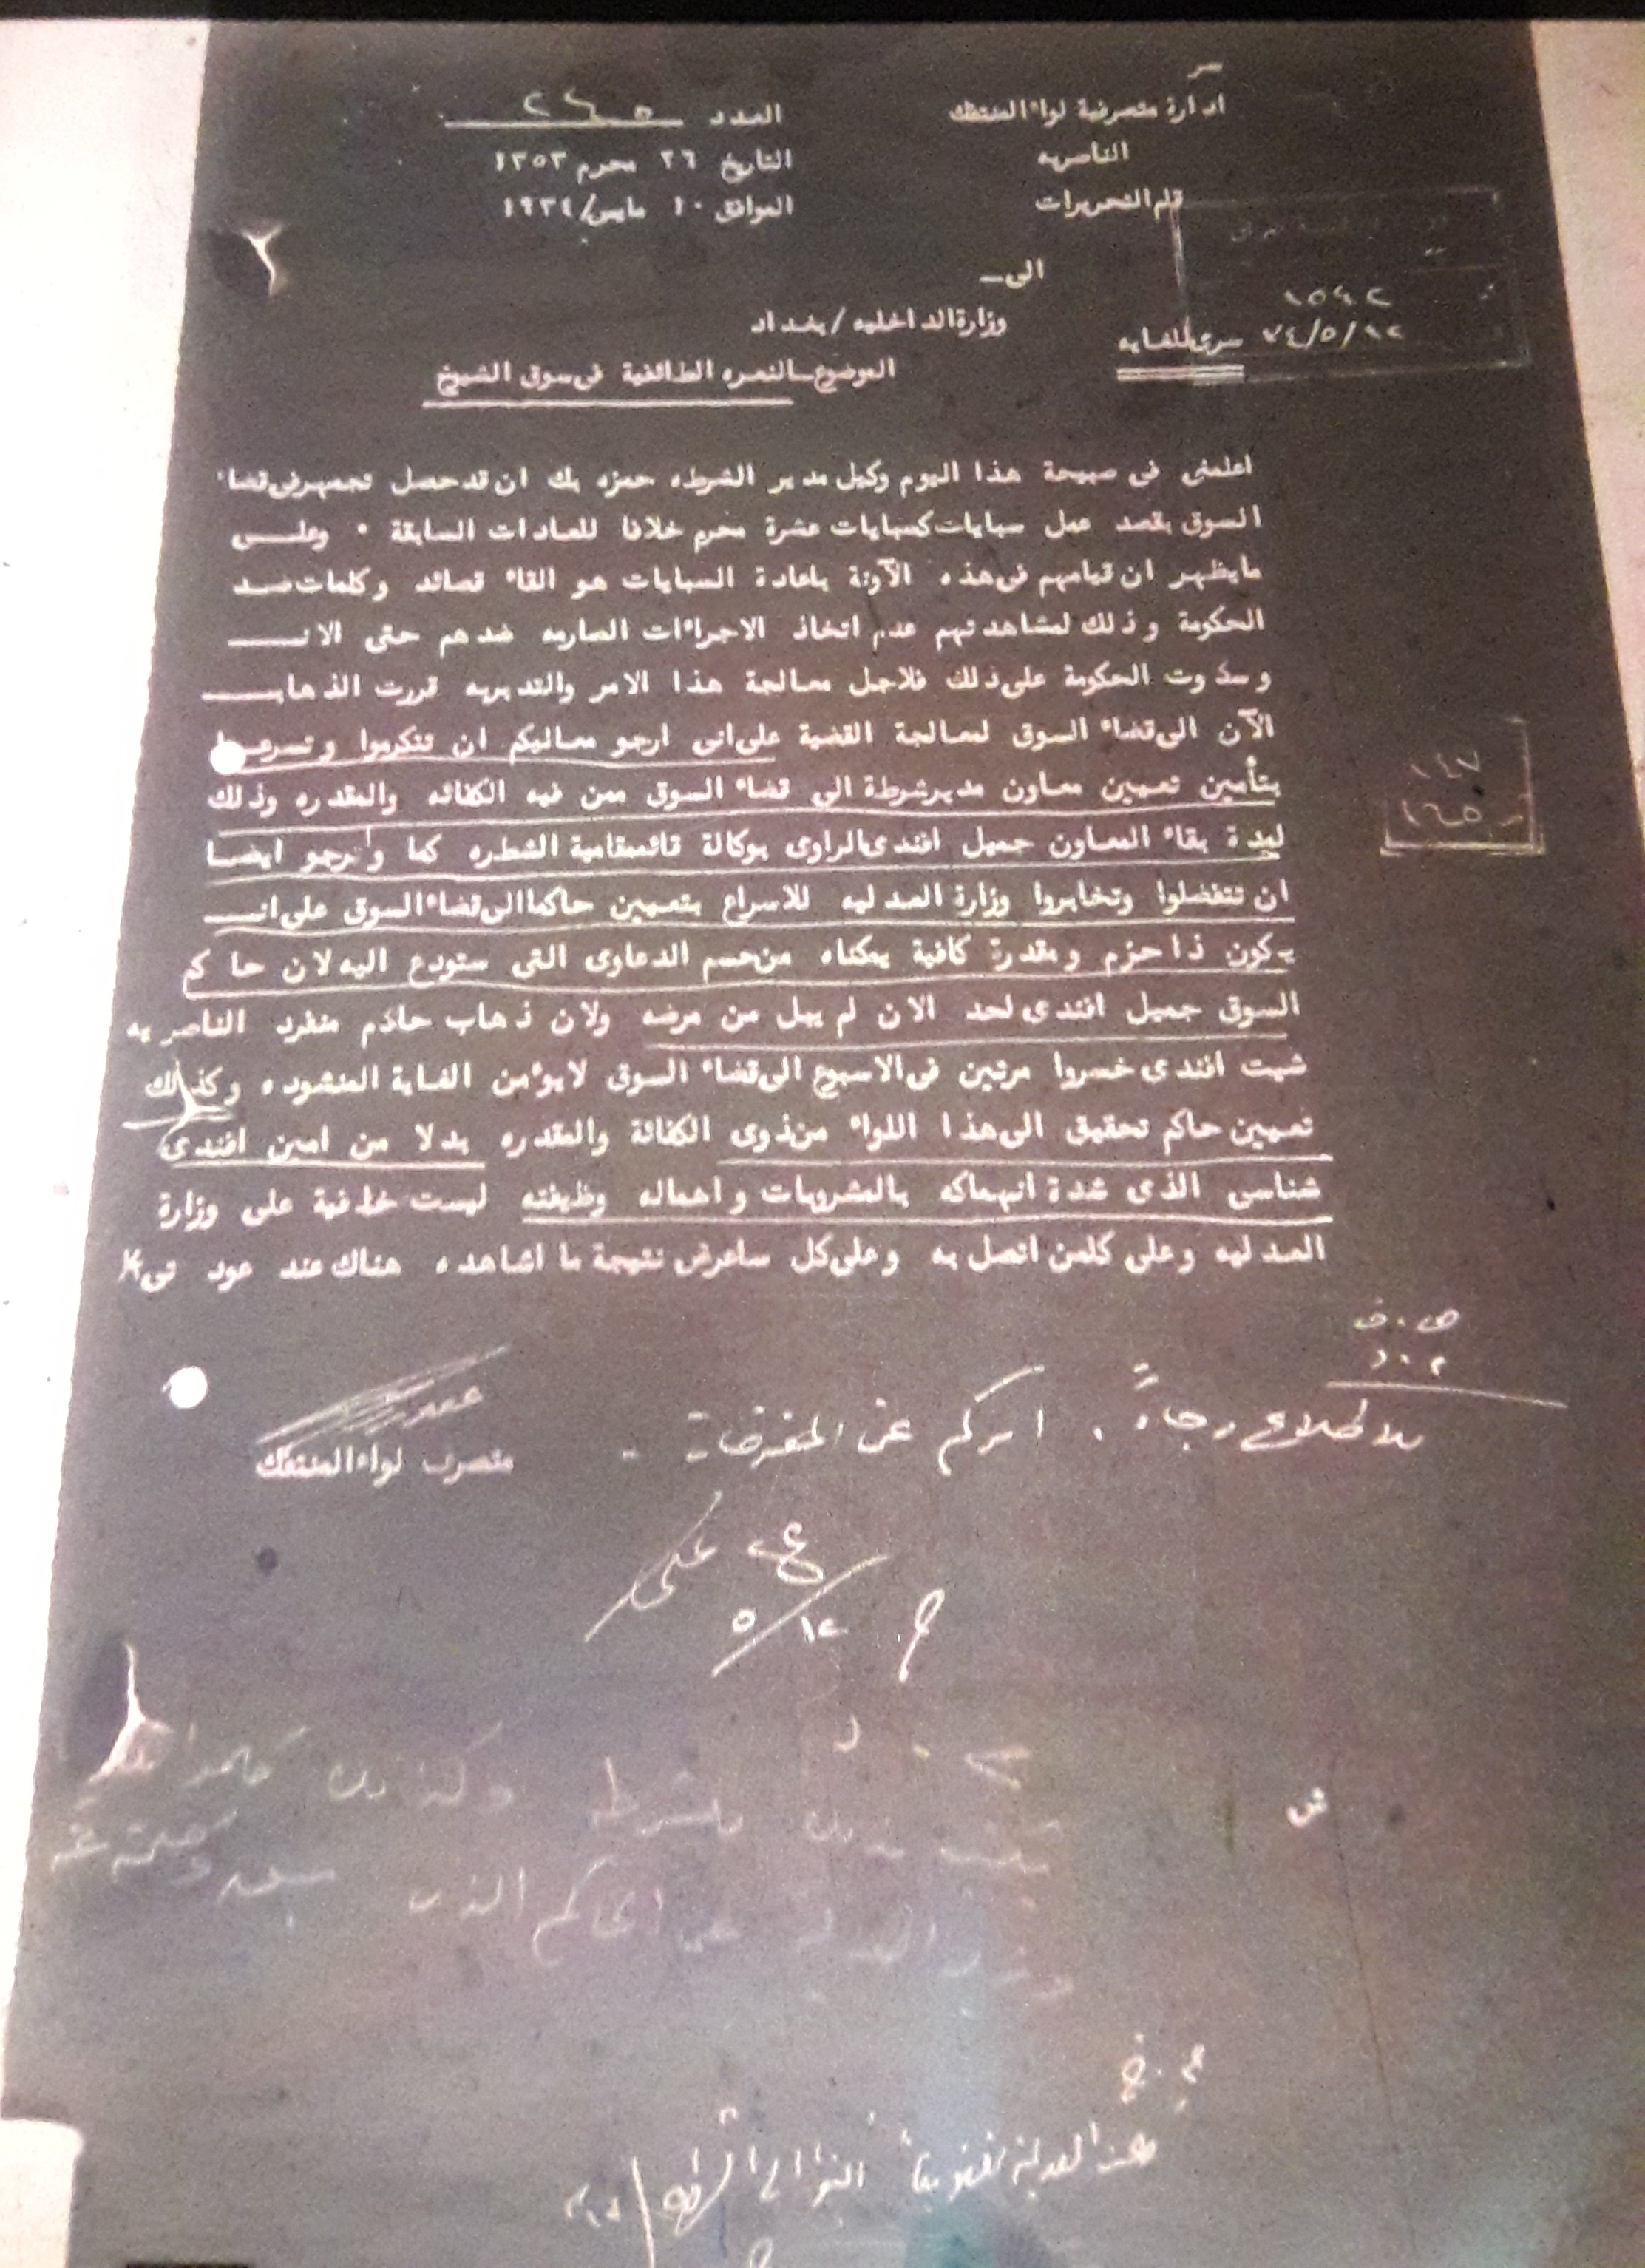 سر
ادارة متصرفية لواء المنتفك
الناصريه
قلم التحريرات
العدد ٢٤٥
التاريخ ٢٦ محرم ١٣٥٣
الموافق ١٠ مايس/١٩٣٤
١٥٤٢
الى ــ
وزارة الداخليه / بغداد
سرى للغايه
الموضوع ــ النعره الطائفية فى سوق الشيوخ
اعلمنى فى صبيحة هذا اليوم وكيل مدير الشرطه حمزه بك ان قد حصل تجمهر فى قضاء
السوق بقصد عمل سبايات كسبايات عشرة محرم خلافا للعادات السابقة ٠ وعلـــى
ما يظهر ان قيامهم فى هذه الآونة باعادة السبايات هو القاء قصائد وكلمات ضــد
الحكومة وذلك لمشاهدتهم عدم اتخاذ الاجراءات الصارمه ضدهم حتى الان ـــ
وسكوت الحكومة على ذلك فلاجل معالجة هذا الامر والتدبريه قررت الذهاب ـــ
الآن الى قضاء السوق لمعالجة القضية على انى ارجو معاليكم ان تتكرموا وتسرعــوا
بتأمين تعيين معاون مدير شرطة الى قضاء السوق ممن فيه الكفائه والمقدره وذلك
لمدة بقاء المعاون جميل افندى الراوى بوكالة قائممقامية الشطره كما وارجو ايضــا
ان تتفضلوا وتخابروا وزارة العدليه للاسراع بتعيين حاكما الى قضاء السوق على ان ـــ
يكون ذا حزم ومقدرة كافية يمكناه من حسم الدعاوى التى ستودع اليه لان حاكم
السوق جميل افندى لحد الان لم يبل من مرضه ولان ذهاب حاكم منفرد الناصريه
شيت افندى خسروا مرتين فى الاسبوع الى قضاء السوق لا يؤمن الغاية المنشوده وكذلك
تعيين حاكم تحقيق الى هذا اللواء من ذوى الكفائة والمقدره بدلا من امين افندى
شناسى الذى شدة انهماكه بالمشروبات واهماله وظيفته ليست خافية على وزارة
العدليه وعلى كلمن اتصل به وعلى كل ساعرض نتيجة ما اشاهده هناك عند عودتى
للاطلاع رجاءً . امركم عن المقترحات
متصرف لواء المنتفك
على
١٢/٥
ش